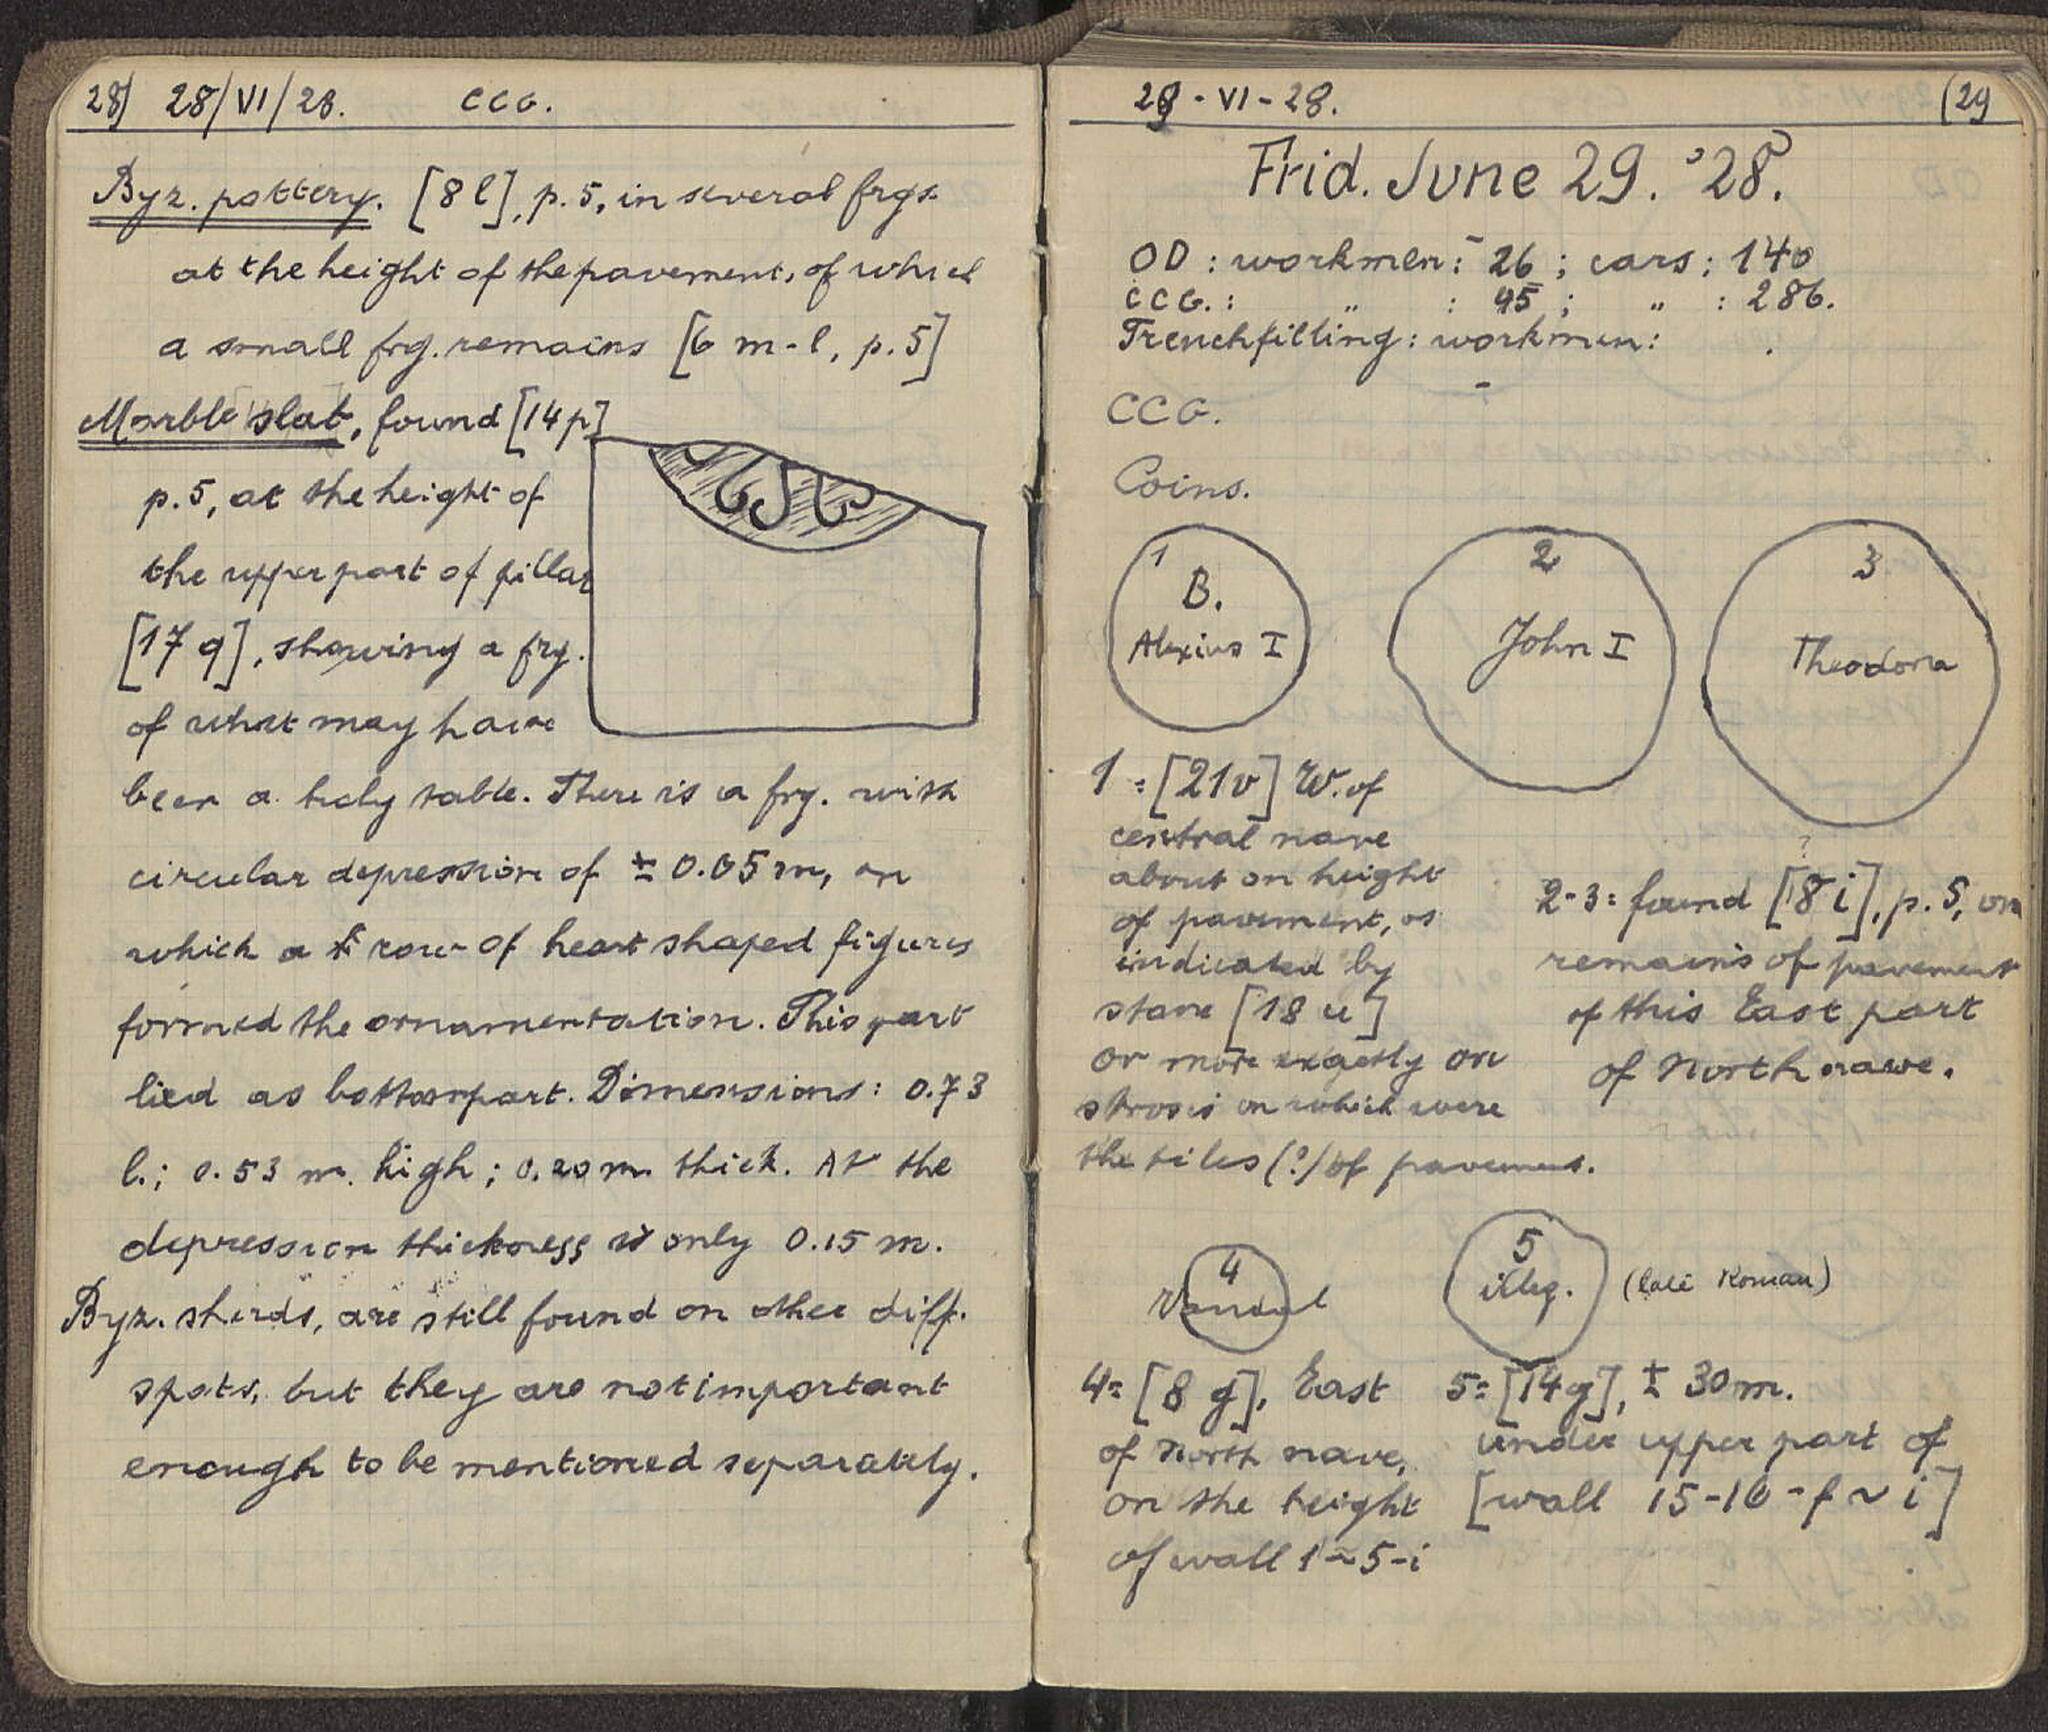 28) 28/VI/28. CCG.
Byz. pottery. [8 l], p. 5, in several frgs.
at the height of the pavement, of which
a small frg. remains [6 m-l, p. 5]
Marble slat, found [14 p]
p. 5, at the height of
the upper part of pillar
[17 q], showing a frg.
of what may have
been a holy table. There is a frg. with
circular depression of ± 0.05 m, on
which a row of heart shaped figures
formed the ornamentation. This part
lied as bottompart. Dimensions: 0.73
l.; 0.53 m. high; 0.20 m. thick. At the
depression thickness is only 0.15 m.
Byz. sherds, are still found on other diff.
spots, but they are not important
enough to be mentioned separately.
29-VI-28. (29
Frid. June 29. '28.
OD: workmen: 26; cars: 140
CCG.: " : 45; " : 286.
Trenchfilling: workmen: .
CCG.
Coins.
1
B.
Alexius I
2
John I
3
Theodora
1 = [21v] W. of
central nave
about on height
of pavement, as
indicated by
stone [18 u]
or more exactly on
strosis on which were
the tiles (?) of pavement.
?
2-3: found [8 i], p. 5, on
remains of pavement
of this East part
of North nave.
4
Vandal
5
illeg.
(late Roman)
4= [8 g], East
of North nave,
on the height
of wall 1~5-i
5= [14g], ± 30 m.
under upper part of
[wall 15-16-f~i]